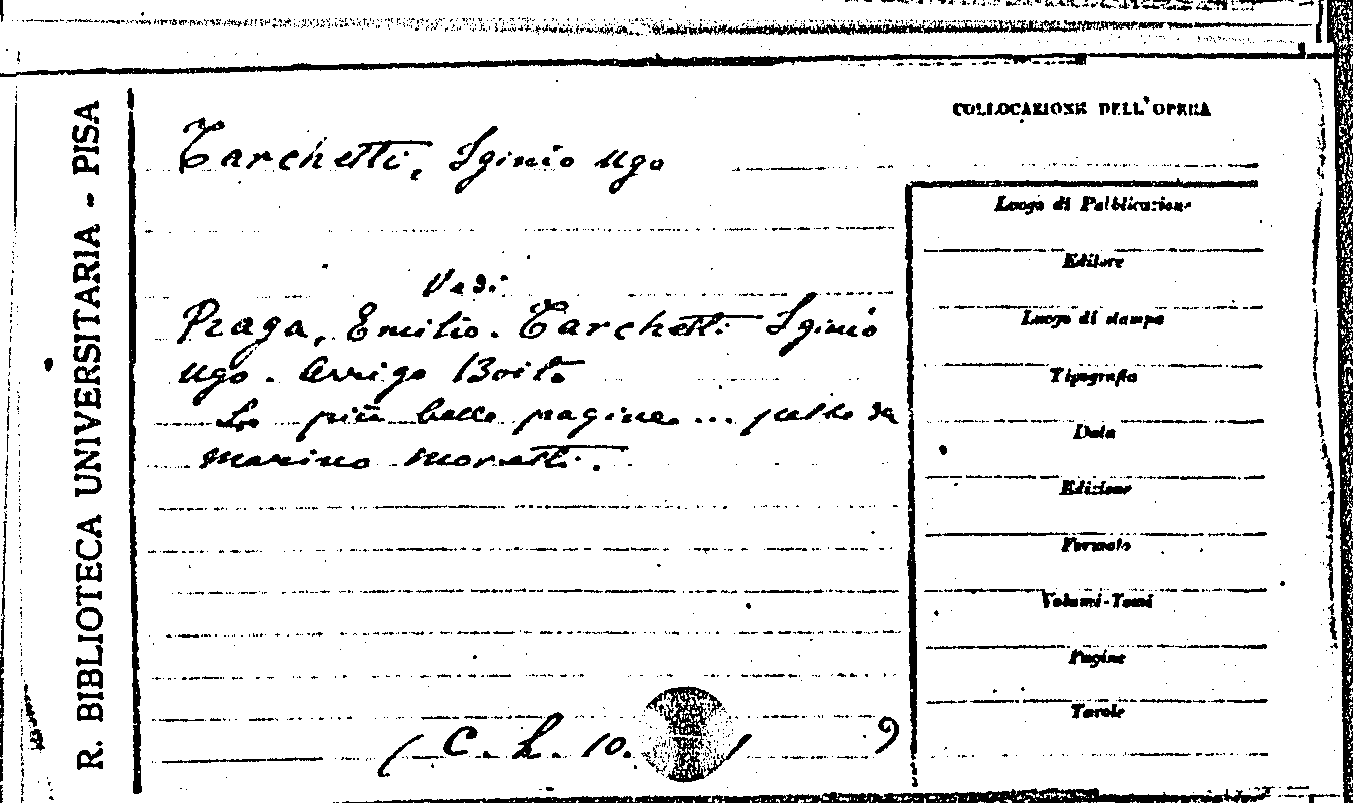 R. BIBLIOTECA UNIVERSITARIA - PISA
COLLOCAZIONE DELL'OPERA
Tarchetti, Iginio Ugo
Vedi
Praga, Emilio. Tarchetti Iginio
Ugo. Arrigo Boito
Le più belle pagine... scelte da
Marino Moretti.
(C. L. 10. )
9
Luogo di Pubblicazione
Editore
Luogo di stampa
Tipografia
Data
Edizione
Formato
Volumi-Tomi
Pagine
Tavole